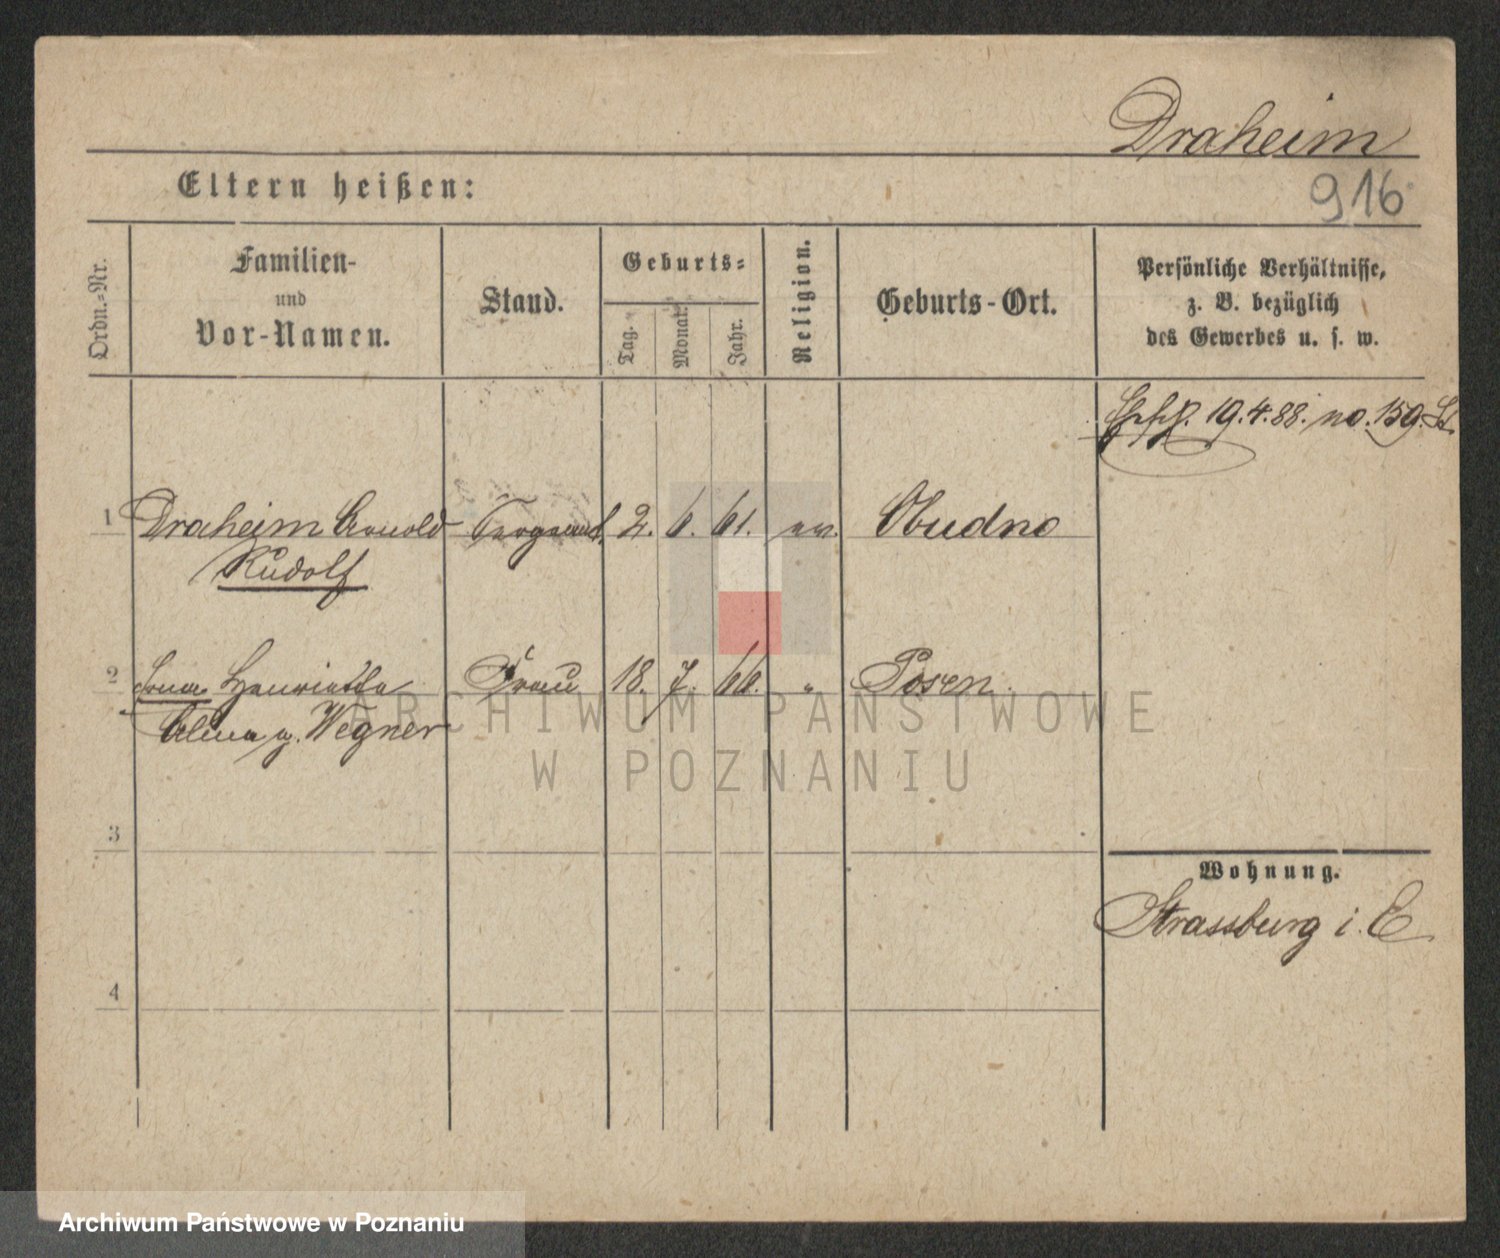 Draheim
Eltern heißen:
916
Ordn.=Nr.
Familien-
und
Vor-Namen.
Stand.
Geburts=
Tag.
Monat.
Jahr.
Religion.
Geburts-Ort.
Persönliche Verhältnisse,
z. B. bezüglich
des Gewerbes u. s. w.
19.4.88. no. 159.
1 Draheim Arnold Sergeant 2. 6. 61. ev. Obudno
Rudolf
2 Henriette Frau 18. 7. 66. " Posen
Alma g. Wegner
ARCHIWUM PAŃSTWOWE
W POZNANIU
3
Wohnung.
Strassburg i. E
4
Archiwum Państwowe w Poznaniu